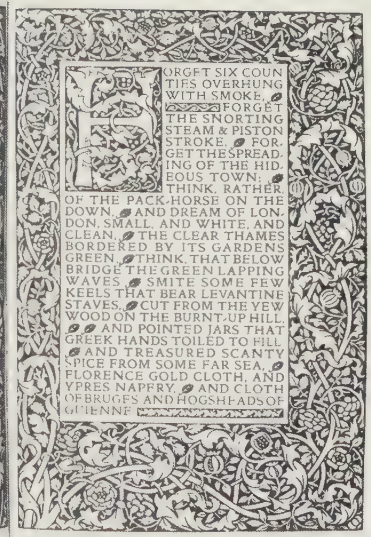 FORGET SIX COUN
TIES OVERHUNG
WITH SMOKE,
FORGET
THE SNORTING
STEAM & PISTON
STROKE, FOR-
GET THE SPREAD-
ING OF THE HID-
EOUS TOWN;
THINK, RATHER,
OF THE PACK-HORSE ON THE
DOWN, AND DREAM OF LON-
DON, SMALL, AND WHITE, AND
CLEAN, THE CLEAR THAMES
BORDERED BY ITS GARDENS
GREEN, THINK, THAT BELOW
BRIDGE THE GREEN LAPPING
WAVES SMITE SOME FEW
KEELS THAT BEAR LEVANTINE
STAVES, CUT FROM THE YEW
WOOD ON THE BURNT-UP HILL
AND POINTED JARS THAT
GREEK HANDS TOILED TO FILL
AND TREASURED SCANTY
SPICE FROM SOME FAR SEA,
FLORENCE GOLD CLOTH, AND
YPRES NAPERY, AND CLOTH
OF BRUGES AND HOGSHEADS OF
GUIENNE